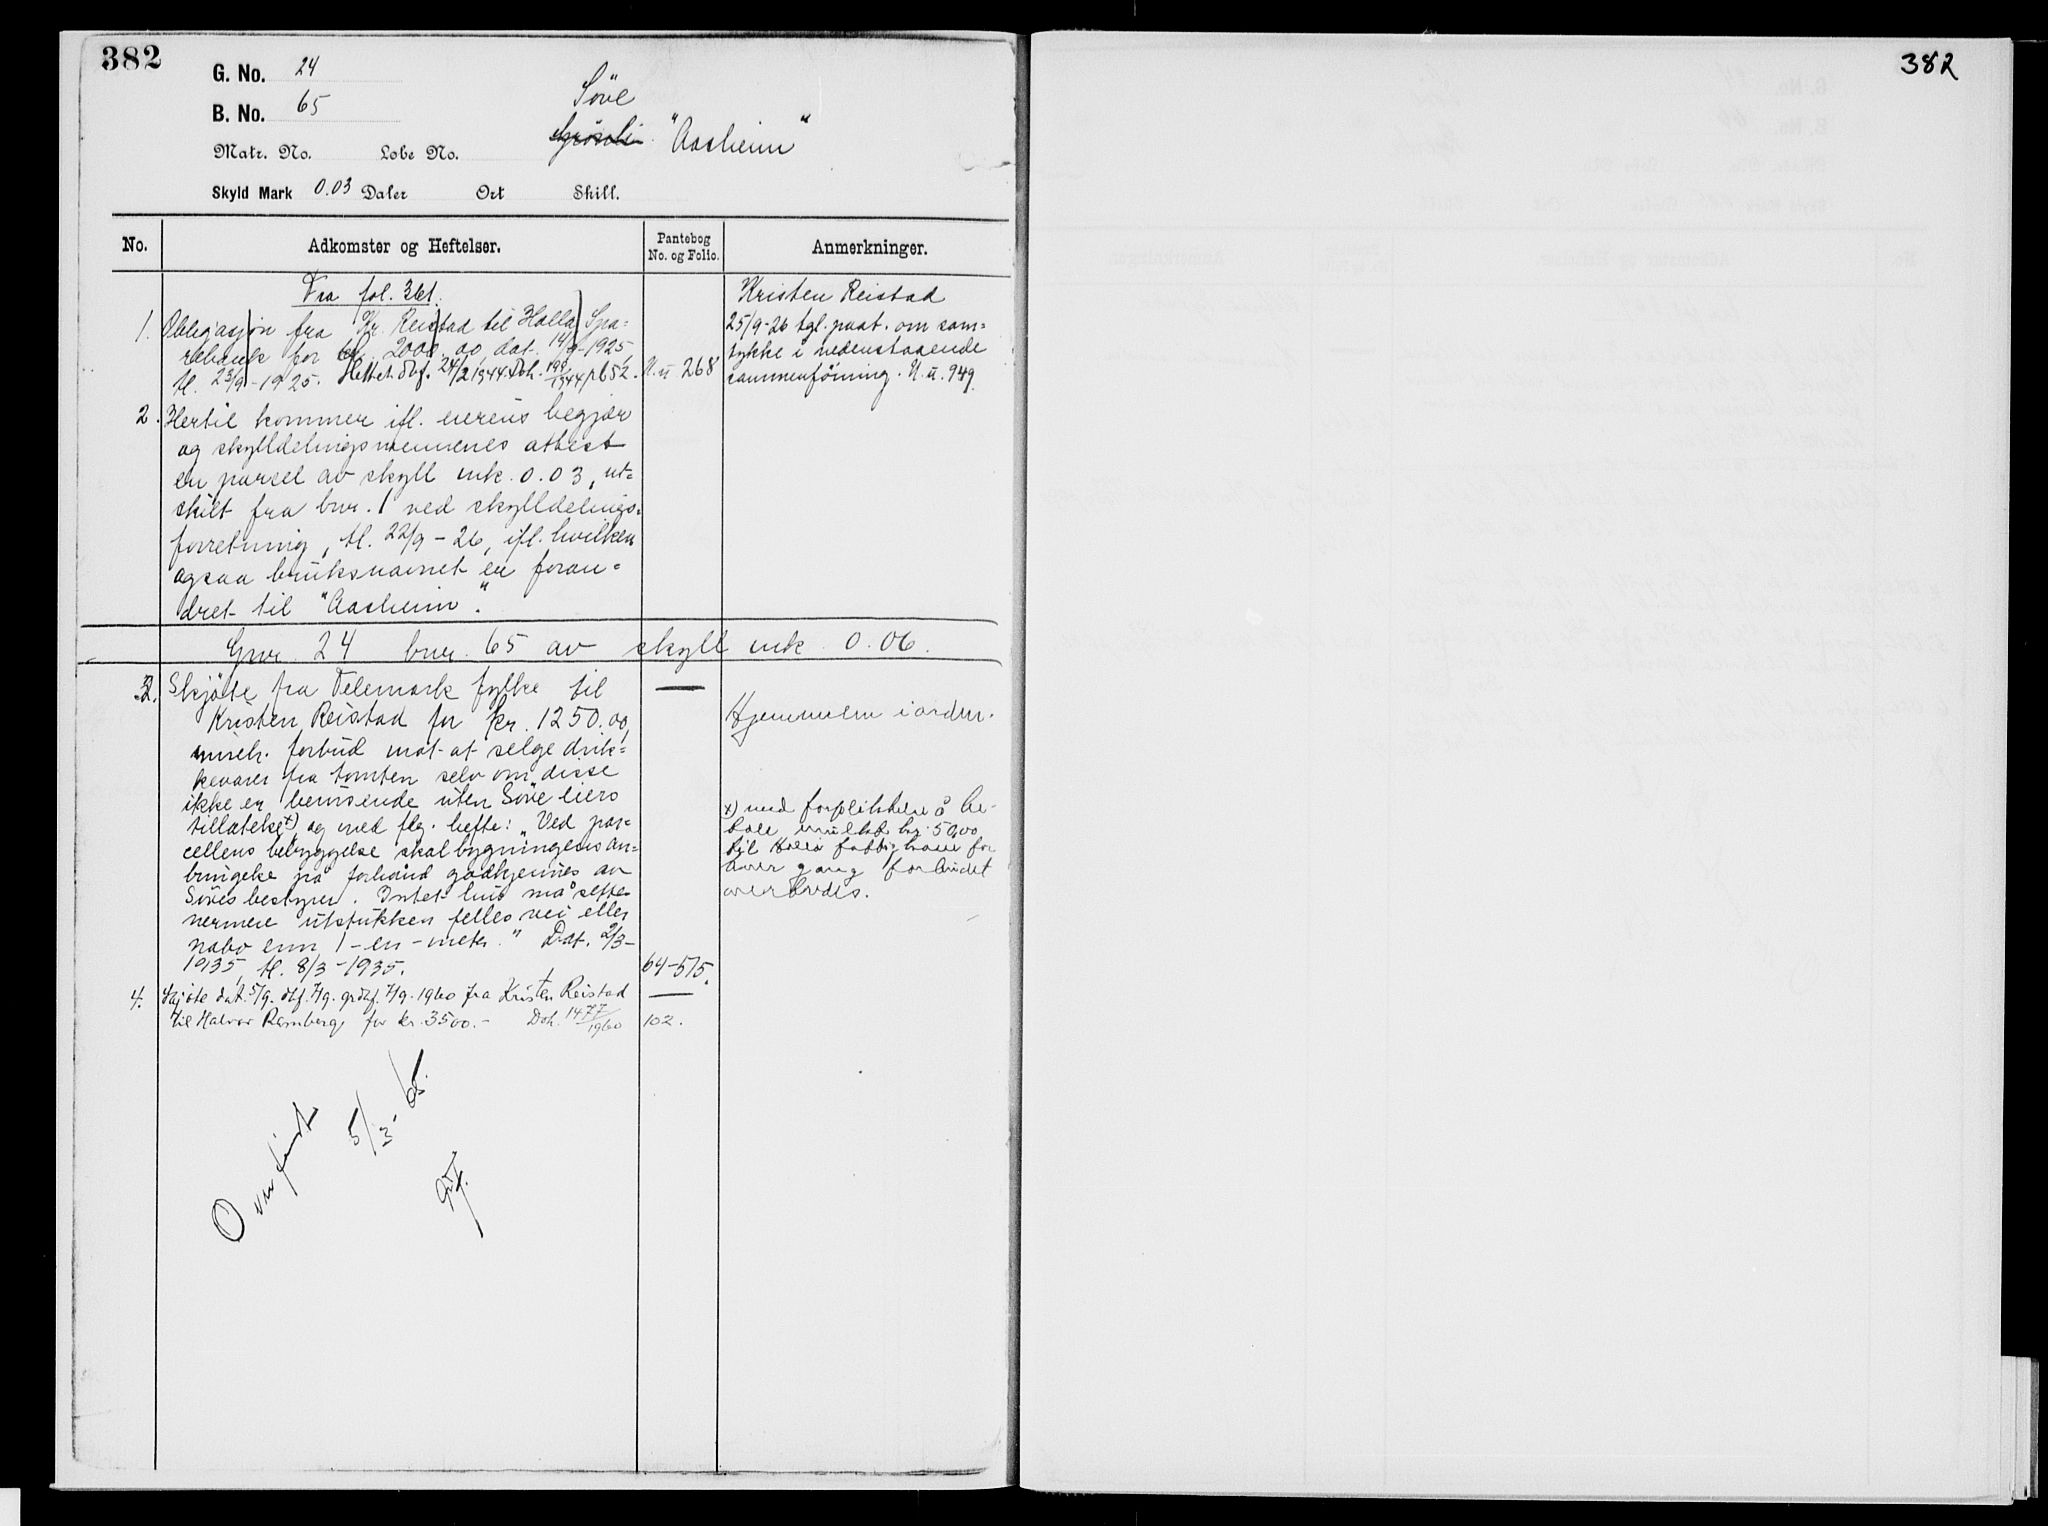 382
382
G. No. 24
B. No. 65
Söve
"Aasheim"
Matr. No. Løbe No.
Skyld Mark 0.03 Daler Ort Skill.
No. Adkomster og Heftelser. Pantebog No. og Folio. Anmerkninger.
Fra fol. 361.
1. Obligasjon fra Kr. Reistad til Holla Spa=
rebank for kr. 2000.00, dat. 14/9-1925,
tl. 23/9-1925. Slettet dbf. 24/2 1944. Dok. 199/1944 p 652. N.ü 268
Kristen Reistad
25/9-26 tgl. paat. om sam=
tykke i nedenstaaende
sammenföining. N.ü. 949.
2. Hertil kommer ifl. eierens begjær
og skylddelingsmennenes attest
en parsel av skyll mk. 0.03, ut=
skilt fra bnr. 1 ved skylldelings=
forretning, tl. 22/9-26, ifl. hvilken
ogsaa bruksnavnet er foran=
dret til "Aasheim".
Gnr. 24 bnr. 65 av skyll mk. 0.06.
3. Skjöte fra Telemark fylke til
Kristen Reistad for kr. 1250.00,
forbud mot at selge drik=
kevarer fra tomten selv om disse
ikke er berusende uten Söve eiers
tillatelse x) og med flg. hefte: "Ved par=
cellens bebyggelse skal bygningenes an=
bringelse på forhånd godkjennes av
Söves bestyrer. Intet hus må settes
nermere utstukken felles vei eller
nabo enn 1-en-meter." Dat. 2/3-
1935, tl. 8/3-1935. 64-575.
Hjemmelen i orden.
x) med forpliktelse å be-
tale mulkt kr. 50,00
til Holla fattigkasse for
hver gang forbudet
overtredes.
4. Skjöte dat. 5/9. dbf. 7/9. grdbf. 7/9. 1960 fra Kristen Reistad
til Halvor Ramberg for kr. 3500.- Dok. 1477/1960 102.
Overfört 5/3-65.